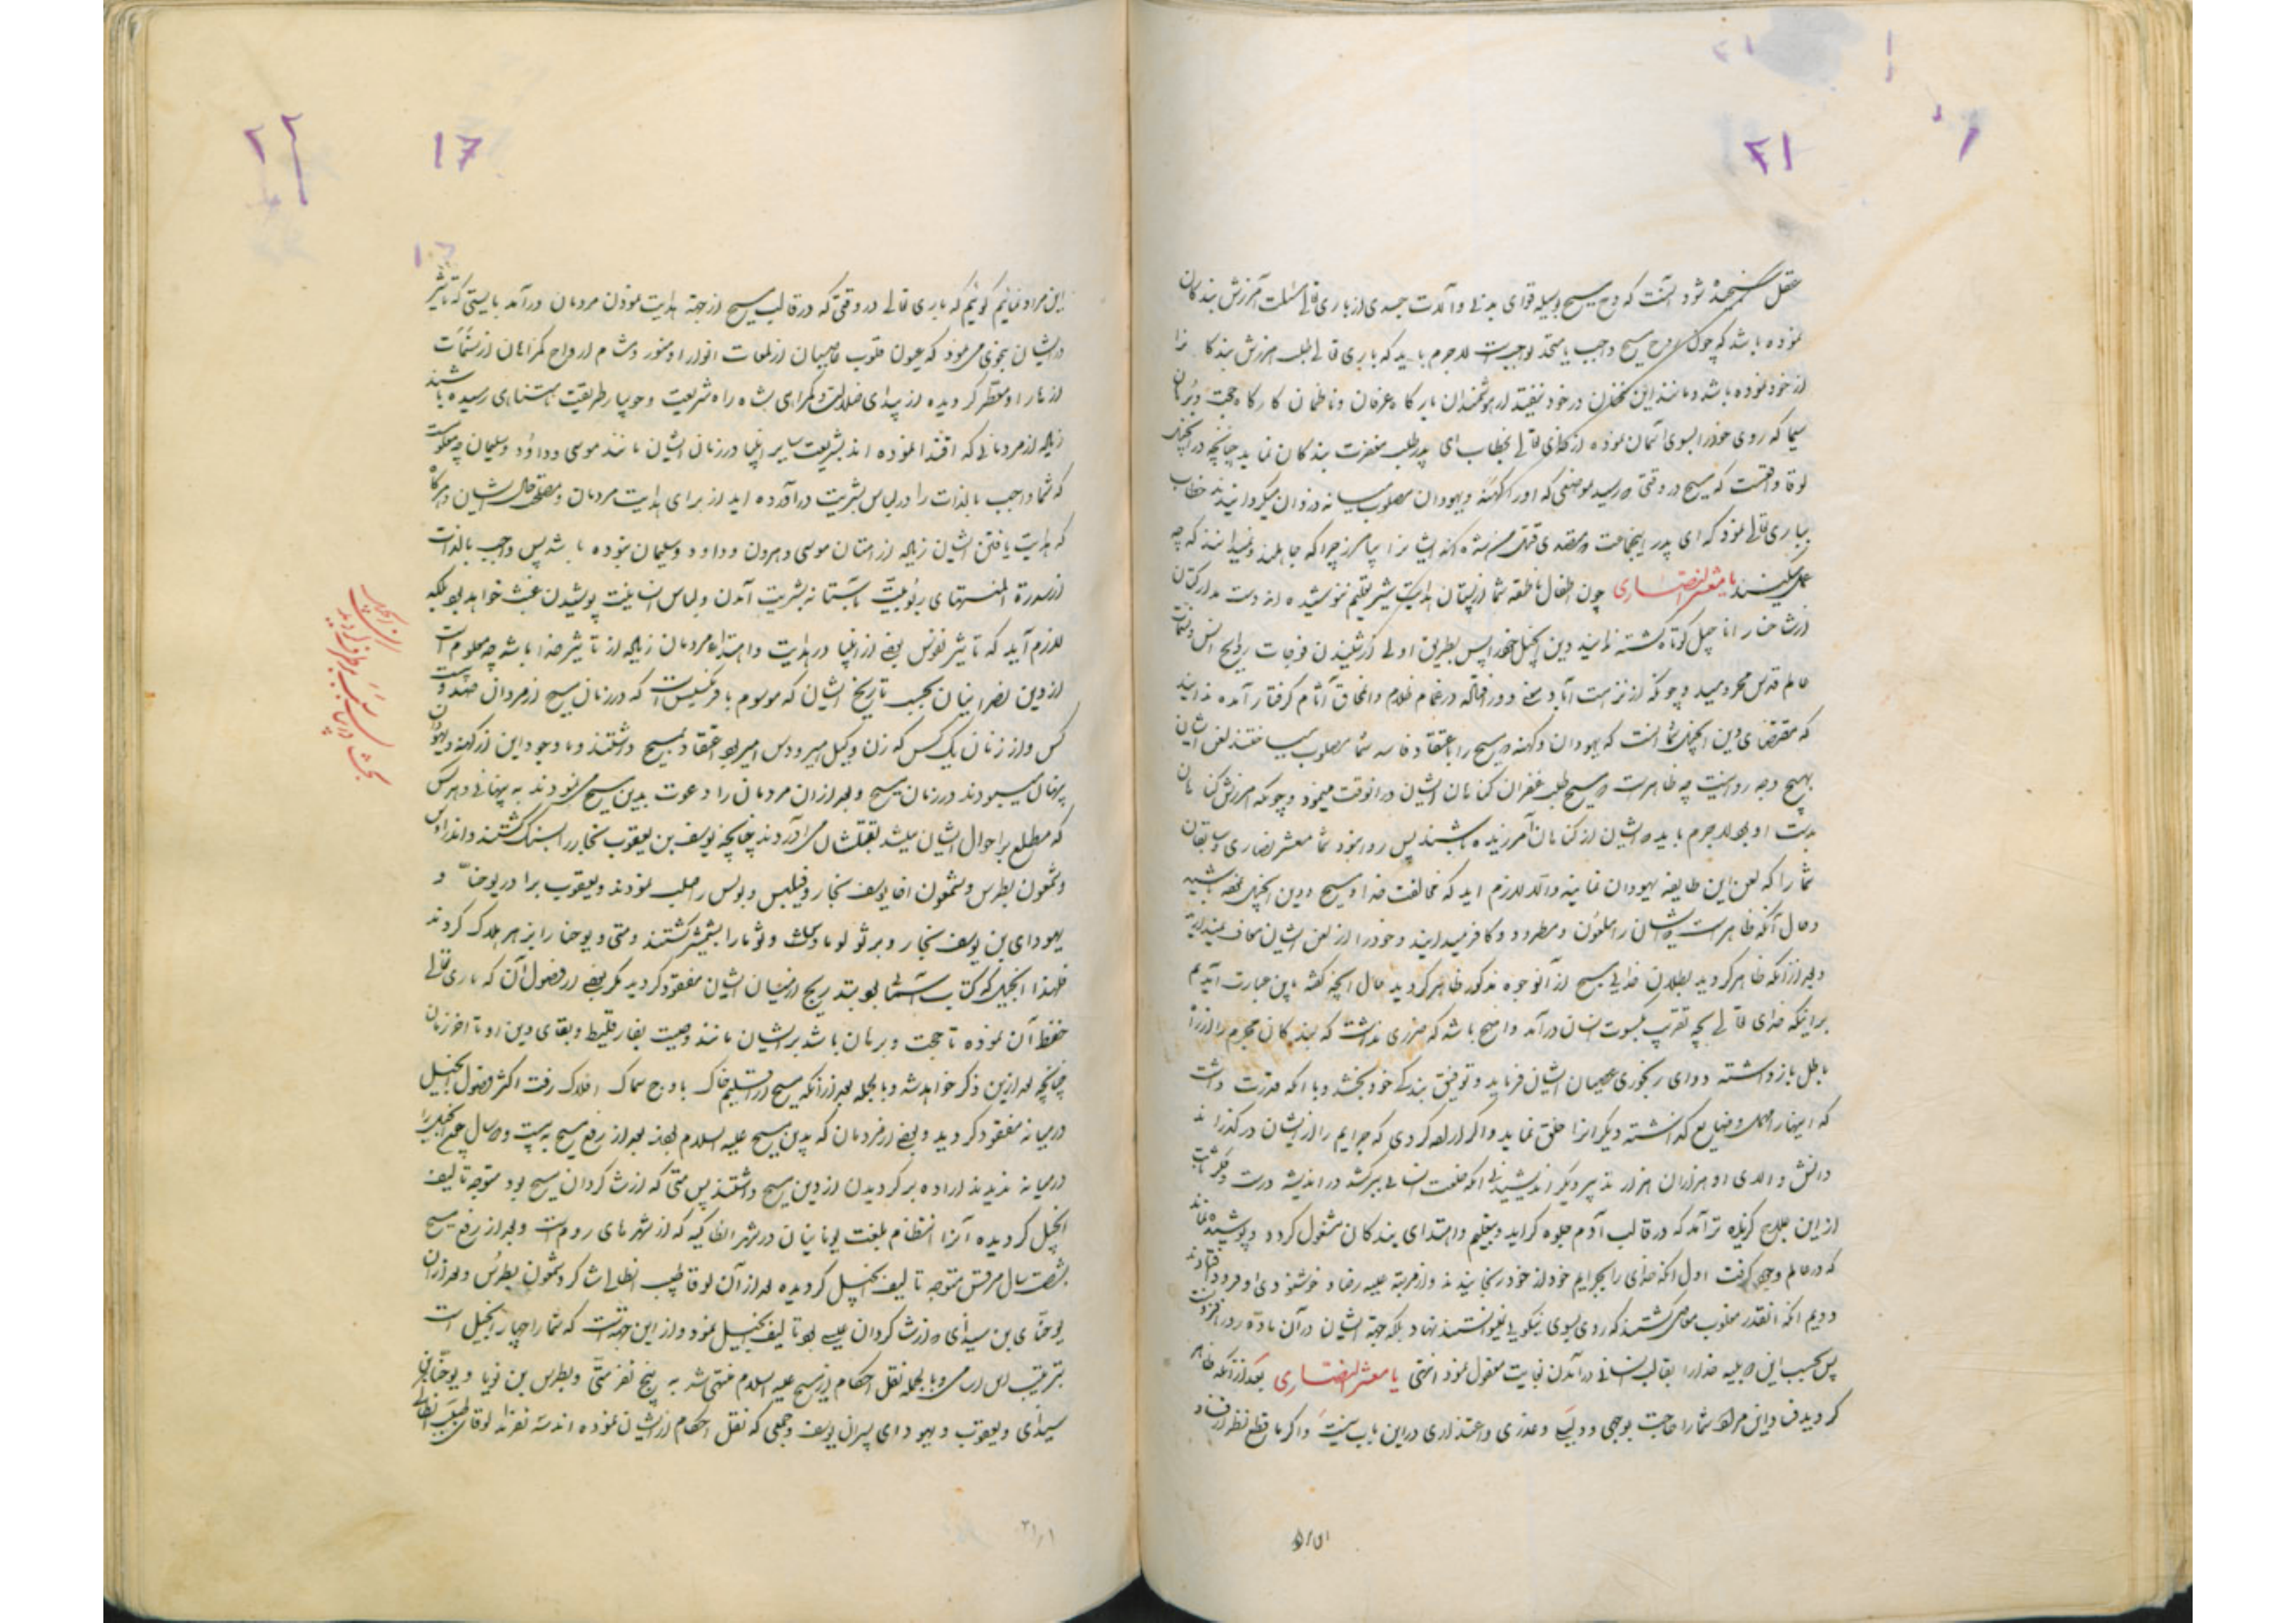 ۲۱
عقل سنجیده شود آنست که روح مسیح بوسیله قوای بدنی و آلات جسدی از باری تعالی مسئلت آمرزش بندگان
نموده باشد که چون روح مسیح واجب یا متحد بواجبست لاجرم باید که باری تعالی طلب امرزش بندکا نرا
از خود نموده باشد و مانند این سخنان در خود نیفتد از هوشمندان بارگاه عرفان و ناظمان کارگاه حجت و برهان
سیما که روی خود را بسوی آسمان نموده از خدای تعالی بخطاب ای پدر طلب مغفرت بندکان نماید چنانچه در انجیل
لوقا واقعست که مسیح در وقتی رسید بموضعی که او را کهنه و یهودان مصلوب میانه دزدان میکردانیدند خطاب
بباری تعالی نمود که ای پدر اینجماعت که متصدی قتل من شده اند ایشانرا بیامرز چرا که جاهلند و نمیدانند که چه
عمل میکنند یا معشر النصاری چون اطفال ناطقه شما از پستان هدایت شیر تعلیم ننوشیده اند دست مدارکتان
از شاخسار اناجیل کوتاه گشته نمایند دین انجیل خود را پس بطریق اولی از شنیدن فوحات روایح انس و نسمات
عالم قدس محرومید و چونکه از نزهت آباد معنی دور افتاده در غمام ظلام و انخاق آثام گرفتار آمده ندانید
که مقتضای دین انجیل شما انست که یهودان و کهنه که مسیح را باعتقاد فاسد شما مصلوب میساختند لعن ایشان
بهیچ وجه روا نیست چه ظاهرست که مسیح طلب غفران گناهان ایشان در انوقت مینمود و چونکه امرزش گناهان
بدست او بود لاجرم باید که ایشان از گناهان آمرزیده باشند پس روا نبود شما معشر نصاری سابقان
شما را که لعن این طایفه یهودان نمایند والا لازم اید که مخالفت خدا و مسیح و دین انجیل نموده باشید
و حال آنکه ظاهرست که ایشان را ملعون و مطرود و کافر میدانید و خود را از لعن ایشان معاف نمیدارید
و بعد از آنکه ظاهر کردید بطلان خدایی مسیح از آنوجوه مذکور ظاهر کردید حال انچه گفته باین عبارت آمدیم
بر اینکه خدای تعالی بچه تقریب بکسوت انسان درآمد واضح باشد که ضرری نداشت که بندکان مجرم را از راه
باطل بازداشته دوای رنجوری عصیان ایشان فرماید و توفیق بندگی خود بخشد و با انکه قدرت داشت
که اینها را مهمل و ضایع گذاشته دیگرانرا خلق نماید و اگر اراده کردی که جرایم را از ایشان درگذراند
دانش والای او هزاران هزار تدبیر دیگر اندیشیدی انکه خلعت انسانی ببر کشد در اندیشه درست و فکر ثابت
از این علاج گزیده تر آمد که در قالب آدم جلوه گراید و بتعلیم و اهتدای بندکان مشغول گردد و پوشیده نماند
که در عالم وجود گرفت اول انکه خدای را بجرایم خود از خود رنجانیدند و از مرتبه علیه رضا و خوشنودی او فرود افتادند
دویم انکه انقدر مغلوب معاصی گشتند که روی بسوی نیکویی نتوانستند نهاد بلکه جهة ایشان در آن ماده ردا افزون
پس بحسب این وسیله خدا را بقالب انسانی درآمدن نهایت معقول نمود انتهی یا معشر النصاری بعد از آنکه ظاهر
گردید فساد این مراد شما را حاجت بوجهی و دلیلی و عذری و اعتذاری در این باب نیست و اگر ما قطع نظر از فساد
۲۲
17
این مراد نمائیم گوئیم که باری تعالی در وقتی که در قالب مسیح از جهة هدایت نمودن مردمان درآمد بایستی که تاثیر
در ایشان بنحوی می نمود که عیون قلوب عاصیان از لمعات انوار او منور و مشام ارواح گمراهان از نسمات
ازهار او معطر گردیده از بیدای ضلالت و گمراهی بشاه راه شریعت و جویبار طریقت مستهای رسیده باشند
زیاده از مردمانی که اقتدا نموده اند بشریعت سایر انبیا در زمان ایشان مانند موسی و داود و سلیمان چه معلومست
که شما واجب بالذات را در لباس بشریت درآورده اید از برای هدایت مردمان و مصلحت حال ایشان و هرگاه
که هدایت یافتن ایشان زیاده از امتان موسی و هرون و داود و سلیمان نبوده باشد پس واجب بالذات
از سدرة المنتهای ربوبیت باستانه بشریت آمدن و لباس انسانیت پوشیدن عبث خواهد بود بلکه
لازم آید که تاثیر نفوس بعضی از انبیا در هدایت و اهتداء مردمان زیاده از تاثیر خدا باشد چه معلوم است
از دین نصرانیان بحسب تاریخ ایشان که موسوم بافرکسیس است که در زمان مسیح از مردان صد و بیست
کس و از زنان یک کس که زن وکیل هیرودس امیر بود اعتقاد بمسیح داشتند و با وجود این از کهنه و یهودان
پنهان میبودند در زمان مسیح و بعد از ان مردمان را دعوت بدین مسیح می نمودند به پنهانی و هر کس
که مطلع بر احوال ایشان میشد بقتلشان می آوردند چنانچه یوسف بن یعقوب نجار را بسنگ کشتند و اندراوس
و شمعون بطرس و شمعون اخا یوسف نجار و فیلبس و بولس را صلب نمودند و یعقوب برادر یوحنا و
یهودای بن یوسف نجار و برثولوما و مالک و ثوما را بشمشیر کشتند و متی و یوحنا را بزهر هلاک کردند
فلهذا انجیل که کتاب آسمانی بود بتدریج از میان ایشان مفقود گردید مگر بعضی از فصول آن که باری تعالی
حفظ آن نموده تا حجت و برهان باشد بر ایشان مانند وصیت بفارقلیط و بقای دین او تا اخر زمان
چنانچه بعد از این ذکر خواهد شد و بالجمله بعد از آنکه مسیح از اقلیم خاک باوج سماک افلاک رفت اکثر فصول انجیل
در میانه مفقود گردید و بعضی از مردمان که بدین مسیح علیه السلام بودند بعد از رفع مسیح به بیست و سال چون انجیل را
در میانه ندیدند اراده برگردیدن از دین مسیح داشتند پس متی که از شاگردان مسیح بود متوجه تالیف
انجیل گردیده آنرا انتظام بلغت یونانیان در شهر انطاکیه که از شهرهای روم است و بعد از رفع مسیح
بشصت سال مرقس متوجه تالیف انجیل گردیده بعد از آن لوقا طبیب انطاکی شاگرد شمعون بطرس و بعد از آن
یوحنای بن سیدای که از شاگردان عیسی بود تالیف انجیل نمود و از این جهتست که شما را چهار انجیل است
بترتیب این اسامی و بالجمله نقل احکام از مسیح علیه السلام منتهی شد به پنج نفر متی و بطرس بن نویا و یوحنا بن
سیدای و یعقوب و یهودای پسران یوسف و جمعی که نقل احکام از ایشان نموده اند سه نفرند لوقای طبیب انطاکی